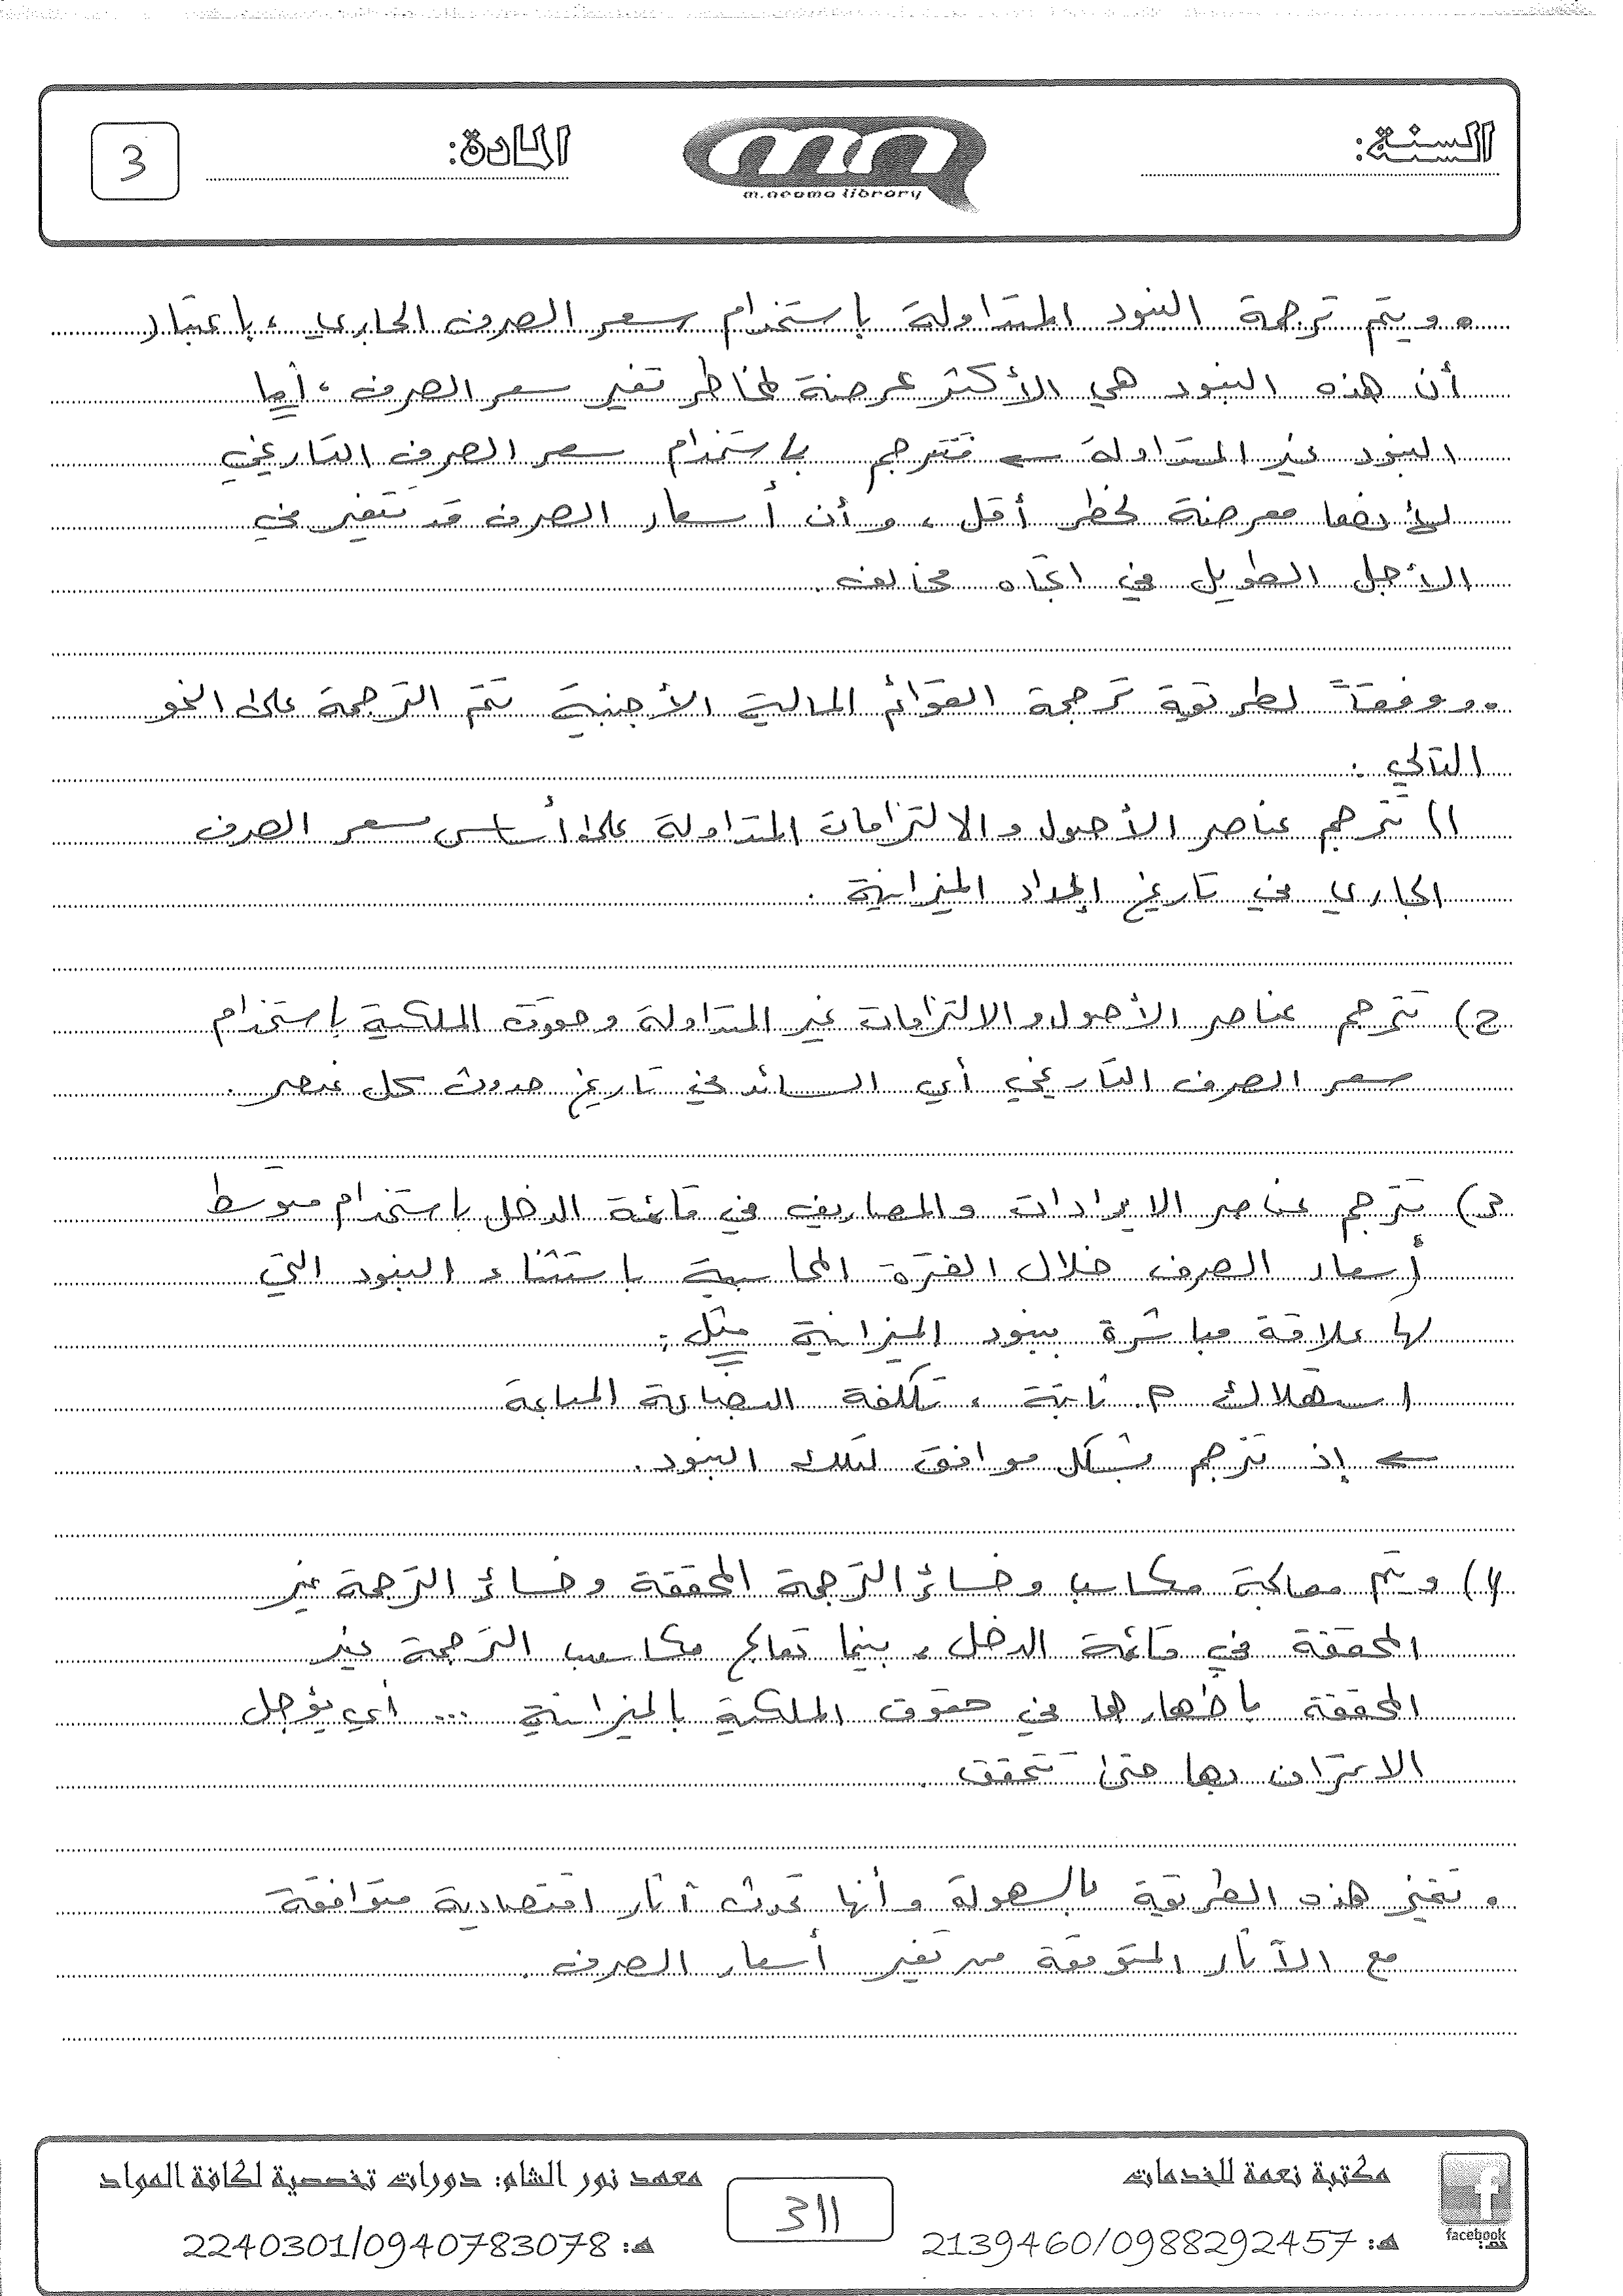 السنة:
m.neama library
المادة:
3
• ويتم ترجمة البنود المتداولة باستخدام سعر الصرف الجاري ، باعتبار
أن هذه البنود هي الأكثر عرضة لمخاطر تغير سعر الصرف ، أما
البنود غير المتداولة ← فتترجم باستخدام سعر الصرف التاريخي
لأنها معرضة لخطر أقل ، وأن أسعار الصرف قد تتغير في
الأجل الطويل في اتجاه مخالف .
• ووفقاً لطريقة ترجمة القوائم المالية الأجنبية تتم الترجمة على النحو
التالي :
1) تترجم عناصر الأصول والالتزامات المتداولة على أساس سعر الصرف
الجاري في تاريخ إعداد الميزانية .
2) تترجم عناصر الأصول والالتزامات غير المتداولة وحقوق الملكية باستخدام
سعر الصرف التاريخي أي السائد في تاريخ حدوث كل عنصر .
3) تترجم عناصر الايرادات والمصاريف في قائمة الدخل باستخدام متوسط
أسعار الصرف خلال الفترة المحاسبية باستثناء البنود التي
لها علاقة مباشرة ببنود الميزانية مثل :
استهلاك م. ثابتة ، تكلفة البضاعة المباعة
← إذ تترجم بشكل موافق لتلك البنود .
4) وتتم معالجة مكاسب وخسائر الترجمة المحققة وخسائر الترجمة غير
المحققة في قائمة الدخل ، بينما تعالج مكاسب الترجمة غير
المحققة باظهارها في حقوق الملكية بالميزانية ... أي يؤجل
الاعتراف بها حتى تتحقق .
• وتتميز هذه الطريقة بالسهولة وأنها تحدث آثار اقتصادية متوافقة
مع الآثار المتوقعة من تغير أسعار الصرف .
facebook
مكتبة نعمة للخدمات
هـ: 2139460/0988292457
311
معهد نور الشام: دورات تخصصية لكافة المواد
هـ: 2240301/0940783078